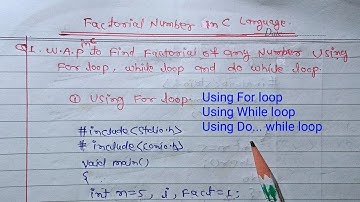 Factorial Number In C Language.
Date
Q1. W.A.P in C to Find Factorial of any Number Using
For loop, while loop and do while loop.
① Using For loop.
Using For loop
Using While loop
Using Do... while loop
#include<stdio.h>
#include<conio.h>
void main()
{
int n=5, i, Fact=1;